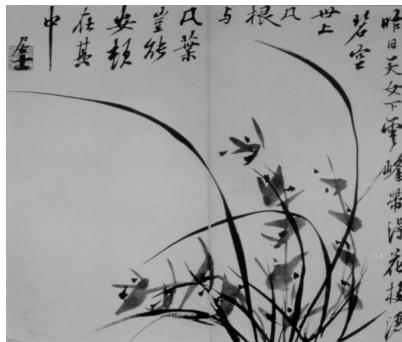 昨日天女下雲峰帶得花枝洒
碧空
世上
凡
根
与
凡葉
豈能
安頓
在其
中